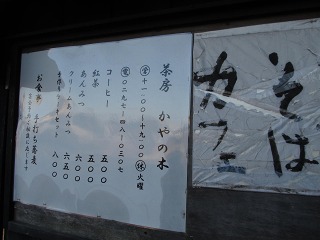 茶房 かやの木
営 十一:〇〇~十九:〇〇 休 火曜
電 〇二九七-四八-〇三〇七
コーヒー 五〇〇
紅茶 五〇〇
あんみつ 六〇〇
クリームあんみつ 六五〇
手作りケーキセット 八〇〇
お食事 手打ち蕎麦
そば
カフェ